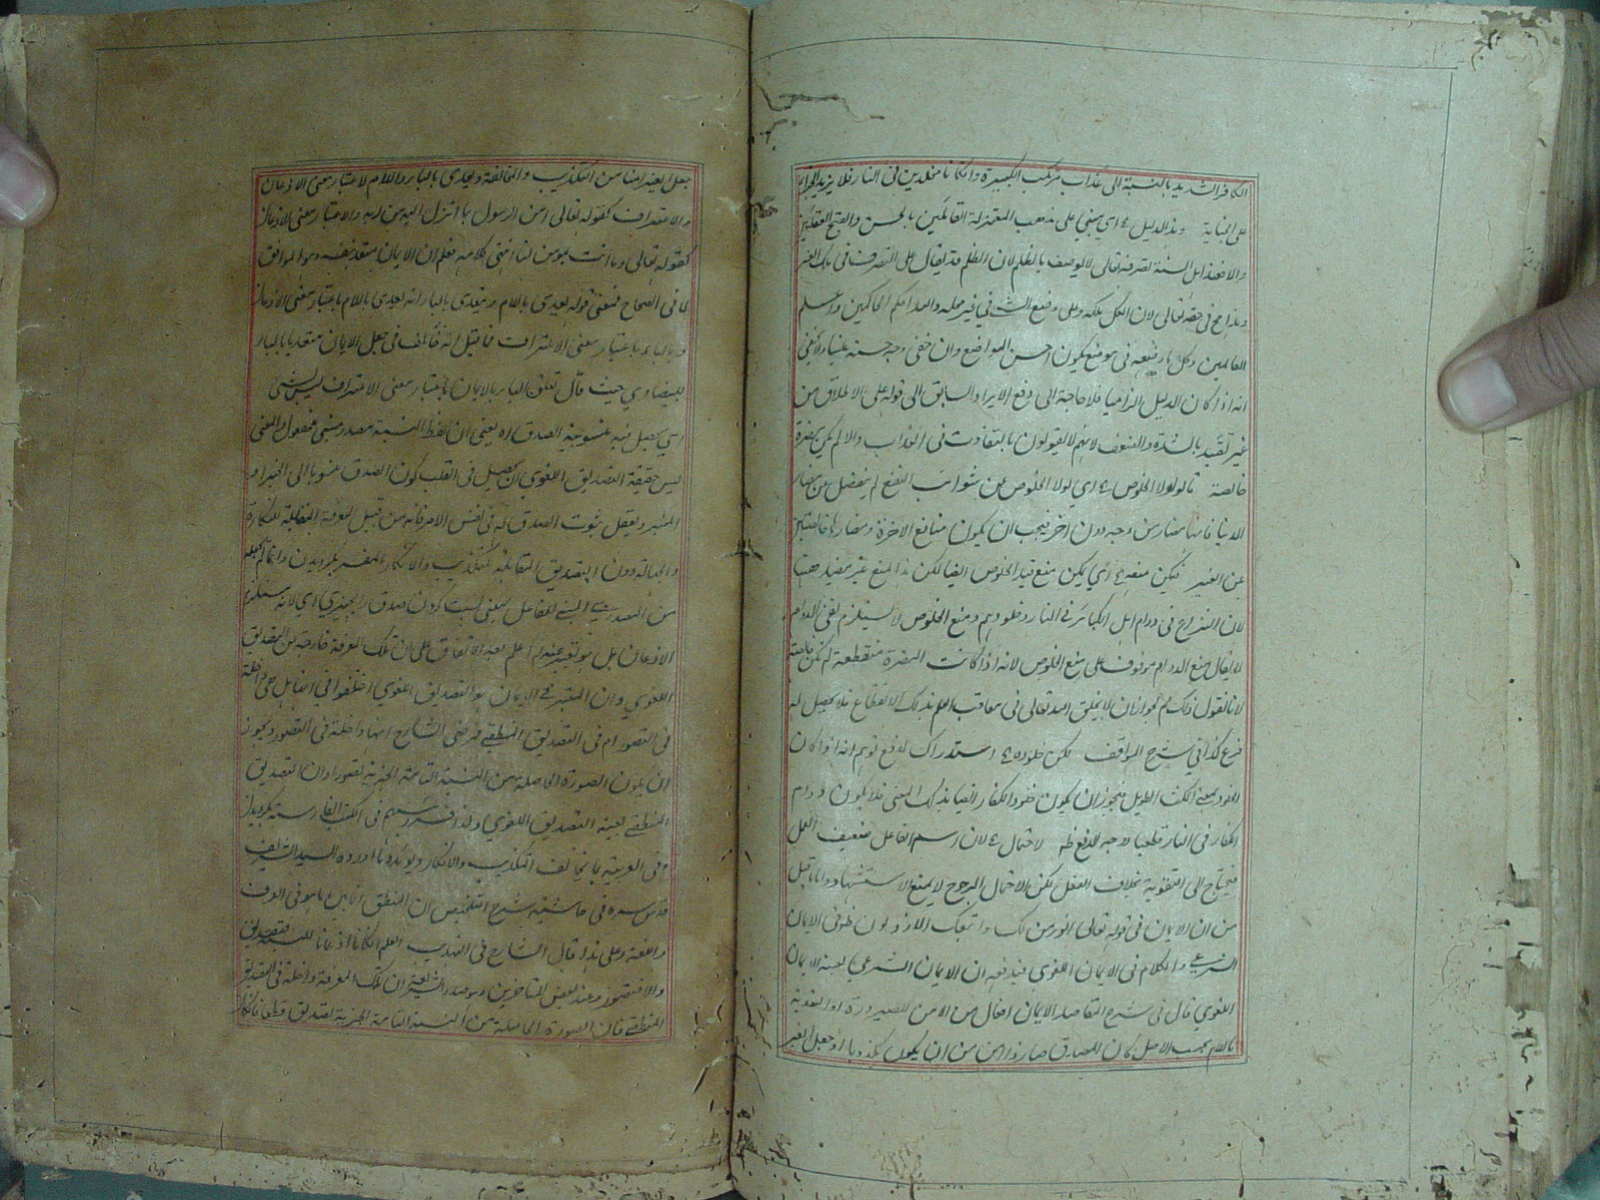 الكافر الشديد بالنسبة الى عذاب مرتكب الكبيرة وان كانا مخلدين فى النار فلا يزيد الجزاء
على الجناية وهذا الدليل اى مبنى على مذهب المعتزلة القائلين بالحسن والقبح العقليين
والا فعند اهل السنة تصرفه تعالى لا يوصف بالظلم لان الظلم قد يقال على التصرف فى ملك الغير
وهذا مح فى حقه تعالى لان الكل ملكه وعلى وضع الشئ فى غير محله والله احكم الحاكمين واعلم
العالمين وكل ما وضعه فى موضع يكون احسن المواضع وان خفى وجه حسنه علينا ولا يخفى
انه اذا كان الدليل الزاميا فلا حاجة الى دفع الايراد السابق الى قوله على الاطلاق من
غير تقييد بالشدة والضعف لانهم لا يقولون بالتفاوت فى العذاب والا لم يكن مضرة
خالصة قالوا لولا الخلوص اى لولا الخلوص عن شوائب النفع لم ينفصل عن مضار
الدنيا فانها مضار من وجه دون اخر فيجب ان يكون منافع الاخرة ومضارها خالصتين
عن الغير يمكن منعه اى يمكن منع قيد الخلوص ايضا لكن هذا المنع غير مفيد ههنا
لان النزاع فى دوام اهل الكبائر فى النار وخلودهم ومنع الخلوص لا يستلزم نفى الدوام
لا يقال منع الدوام موقوف على منع الخلوص لانه اذا كانت المضرة منقطعة لم تكن خالصة
لانا نقول ذلك مم لجواز ان لا يخلق الله تعالى فى معاقب العلم بذلك الانقطاع فلا يحصل له
فرح كذا فى شرح المواقف لكن خلوده استدراك لدفع توهم انه اذا كان
الخلود بمعنى المكث الطويل فيجوز ان يكون خلود الكفار ايضا بذلك المعنى فلا يكون دوام
الكفار فى النار قطعيا ووجه الدفع ظ لاحتمال لان اسم الفاعل ضعيف العمل
فيحتاج الى التقوية بخلاف الفعل لكن الاحتمال المرجوح لا يمنع الاستشهاد وما قيل
من ان الايمان فى قوله تعالى انؤمن لك واتبعك الارذلون ظ فى الايمان
الشرعى والكلام فى الايمان اللغوى فيدفعه ان الايمان الشرعى بعينه الايمان
اللغوى قال فى شرح المقاصد الايمان افعال من الامن للصيرورة او التعدية
بحسب الاصل كان المصدق صار ذا امن من ان يكون مكذوبا او جعل الغير
جعل الغير امنا من التكذيب والمخالفة ويعدى بالباء واللام لاعتبار معنى الاذعان
والاعتراف كقوله تعالى امن الرسول بما انزل اليه من ربه والاعتبار معنى الاذعان
كقوله تعالى وما انت بمؤمن لنا انتهى كلامه فعلم ان الايمان متعد بنفسه وهو الموافق
لما فى الصحاح فمعنى قوله يعدى باللام ويتعدى بالباء انه يعدى باللام باعتبار معنى الاذعان
وبالباء باعتبار معنى الاعتراف فما قيل انه مخالف فى جعل الايمان متعديا بالباء
للبيضاوى حيث قال تعلق الباء بالايمان باعتبار معنى الاعتراف ليس بشئ
اى يحصل فيه منسوبية الصدق اه يعنى ان لفظ النسبة مصدر مبنى للمفعول والمعنى
ليس حقيقة التصديق اللغوى ان يحصل فى القلب كون الصدق منسوبا الى الخبر او
المخبر ويعقل ثبوت الصدق له فى نفس الامر فانه من قبيل المعرفة المقابلة للنكارة
والجهالة دون التصديق المقابل للتكذيب والانكار المفسر بكرويدن
من المصدر المبنى للفاعل بمعنى نسبت كردن صدق
الاذعان بل هو تعبير عنه ثم اعلم بعد الاتفاق على ان تلك المعرفة خارجة عن التصديق
اللغوى وان المعتبر فى الايمان هو التصديق اللغوى اختلفوا فى انها هل هى داخلة
فى التصور ام فى التصديق المنطقى فرضى الشارح انها داخلة فى التصور ويجوز
ان يكون الصورة الحاصلة من النسبة التامة الخبرية تصورا وان التصديق
المنطقى بعينه التصديق اللغوى ولذا فسره رئيسهم فى الكتب الفارسية بكرويدن
وفى العربية بما يخالف التكذيب والانكار ويؤيده ما اورده السيد الشريف
قدس سره فى حاشية شرح التلخيص ان المنطق انما يبين ما هو فى العرف
واللغة وعلى هذا قال الشارح فى التهذيب العلم ان كان اذعانا للنسبة فتصديق
والا فتصور وعند بعض المتاخرين وهو صدر الشريعة ان تلك المعرفة داخلة فى التصديق
المنطقى فان الصورة الحاصلة من النسبة التامة الخبرية تصديق قطعا